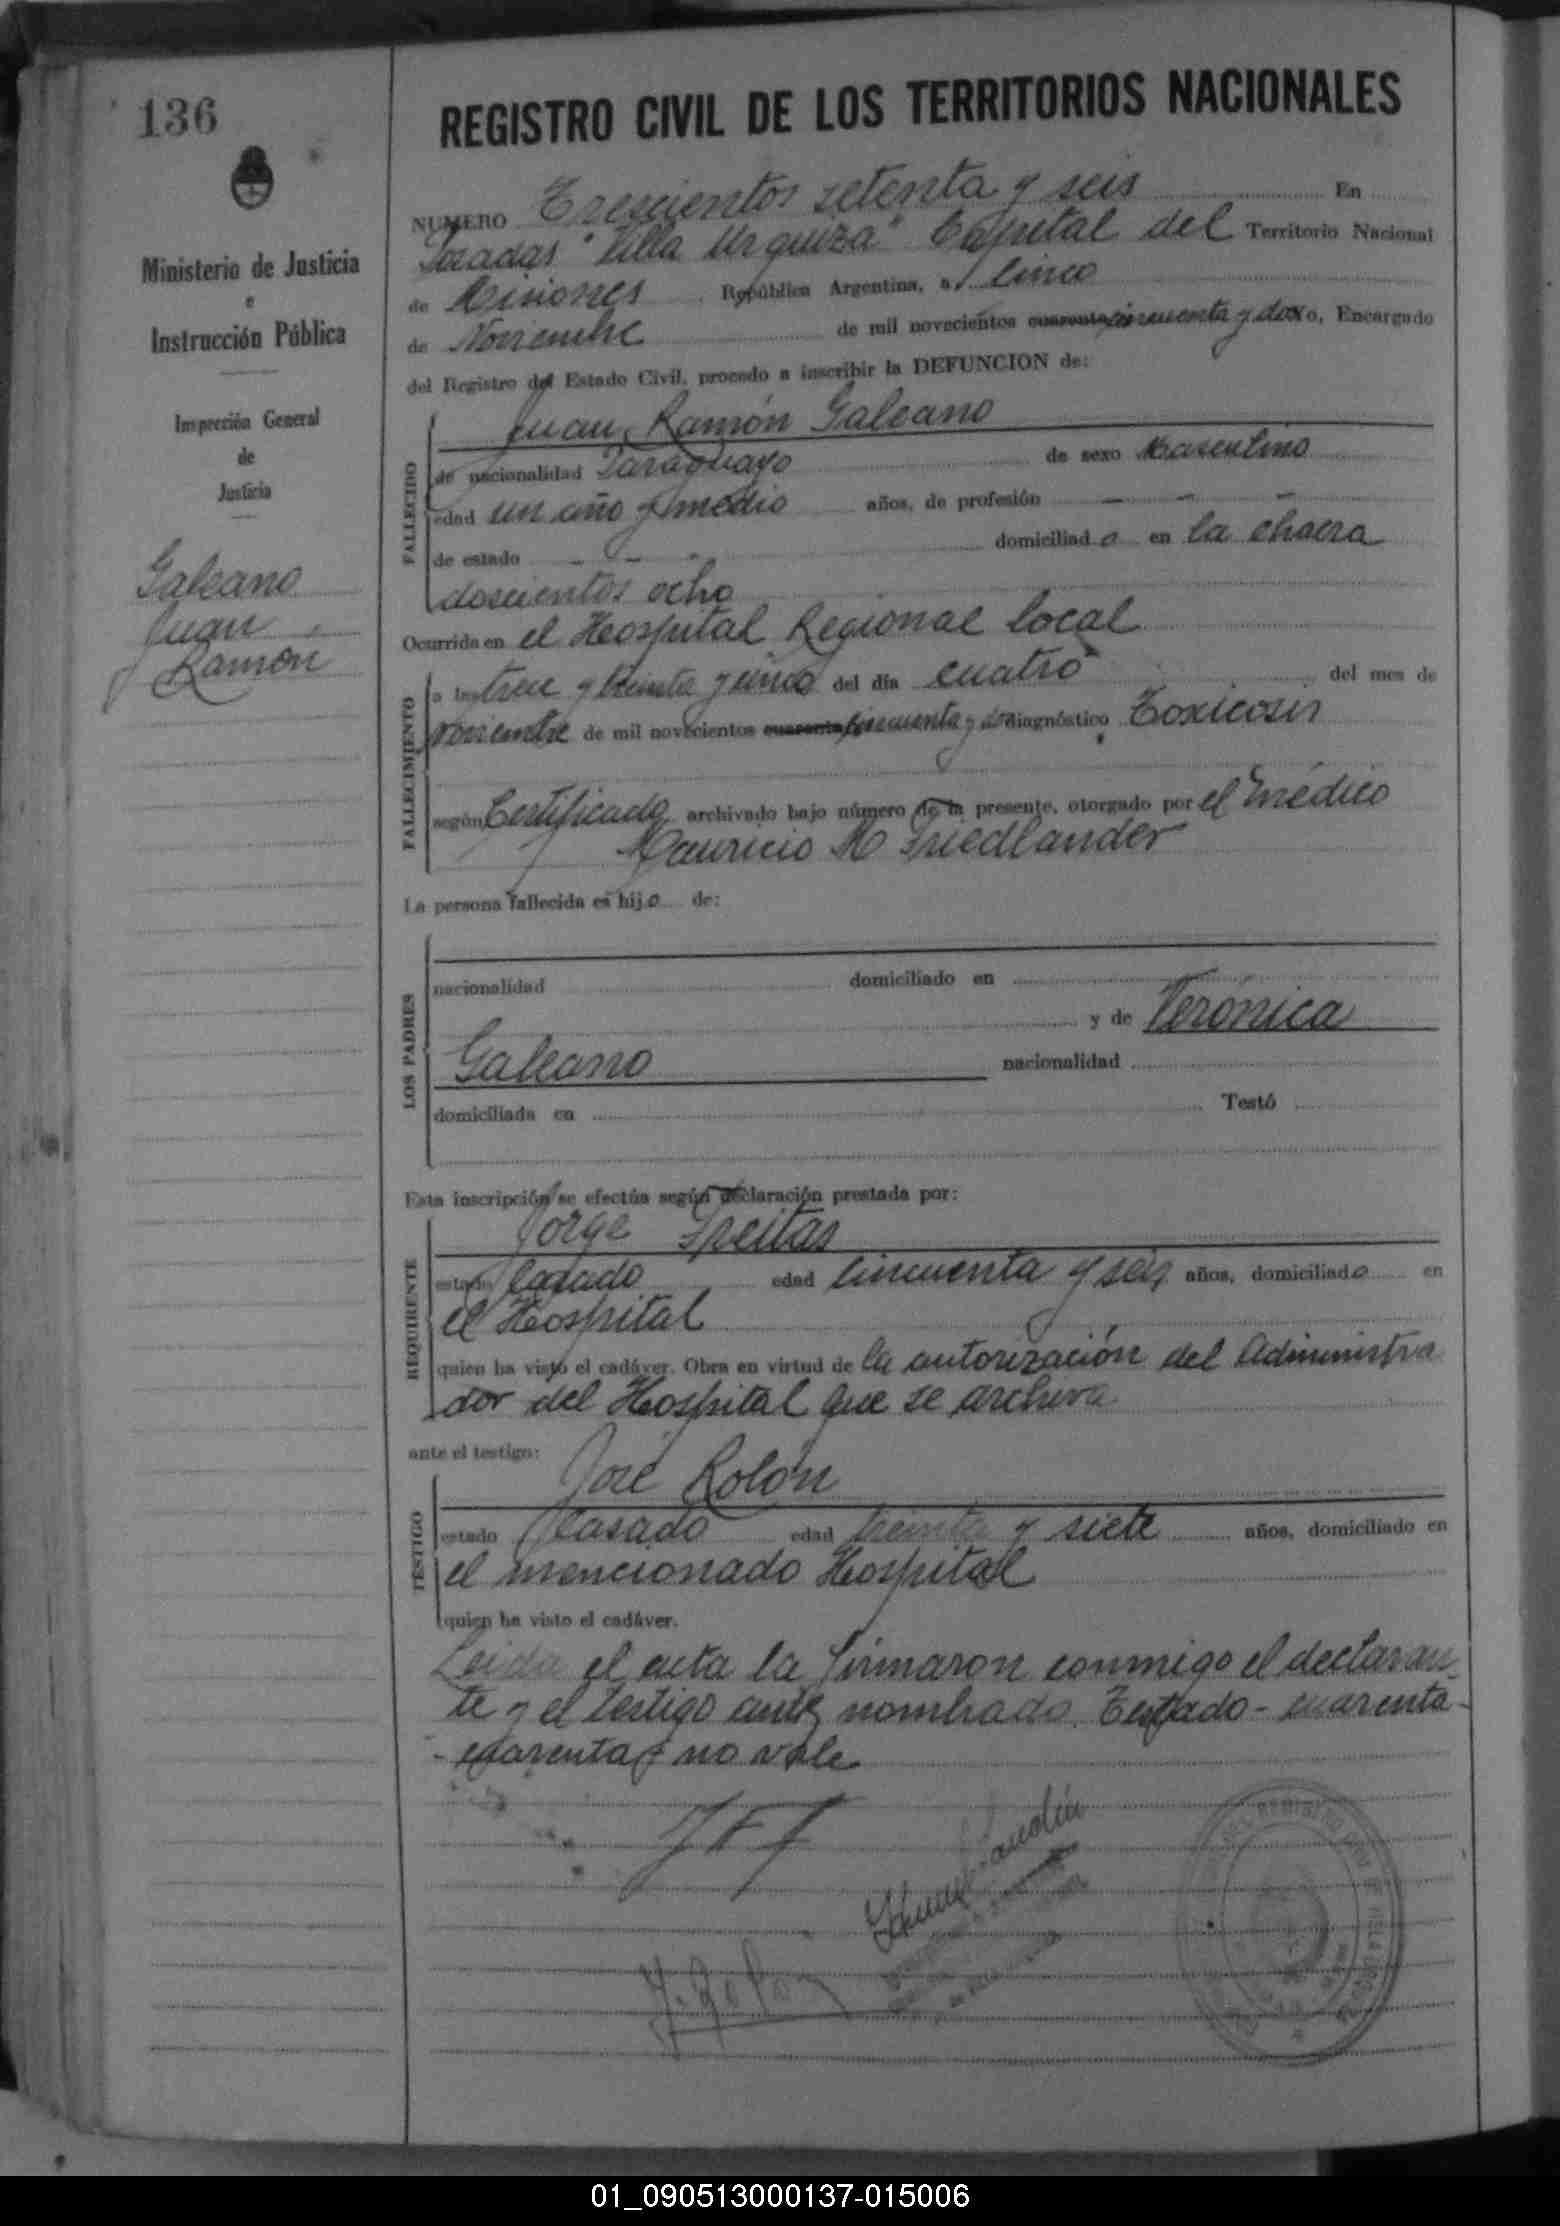 136
Ministerio de Justicia
e
Instrucción Pública
Inspección General
de
Justicia
Galeano
Juan
Ramón
REGISTRO CIVIL DE LOS TERRITORIOS NACIONALES
NUMERO Trescientos setenta y seis En
Posadas "Villa Urquiza" Capital del Territorio Nacional
de Misiones, República Argentina, a cinco
de Noviembre de mil novecientos cuarenta cincuenta y dos yo, Encargado
del Registro del Estado Civil, procedo a inscribir la DEFUNCION de:
FALLECIDO
Juan Ramón Galeano
de nacionalidad Paraguayo de sexo Masculino
edad un año y medio años, de profesión - - -
de estado - - - domiciliado en la chacra
doscientos ocho
Ocurrida en el Hospital Regional local
FALLECIMIENTO
a las trece y treinta y cinco del día cuatro del mes de
Noviembre de mil novecientos cuarenta cincuenta y dos diagnóstico Toxicosis
según Certificado archivado bajo número de la presente, otorgado por el Médico
Mauricio M Friedlander
La persona fallecida es hijo de:
LOS PADRES
nacionalidad domiciliado en
y de Verónica
Galeano nacionalidad
domiciliada en Testó
Esta inscripción se efectúa según declaración prestada por:
REQUIRENTE
Jorge Freitas
estado Casado edad cincuenta y seis años, domiciliado en
el Hospital
quien ha visto el cadáver. Obra en virtud de la autorización del Administra
dor del Hospital que se archiva
ante el testigo:
TESTIGO
José Rolón
estado Casado edad treinta y siete años, domiciliado en
el mencionado Hospital
quien ha visto el cadáver.
Leida el acta la firmaron conmigo el declaran_
te y el testigo ante nombrado. Testado - cuarenta -
- cuarenta - no vale
J. Rolon
01_090513000137-015006